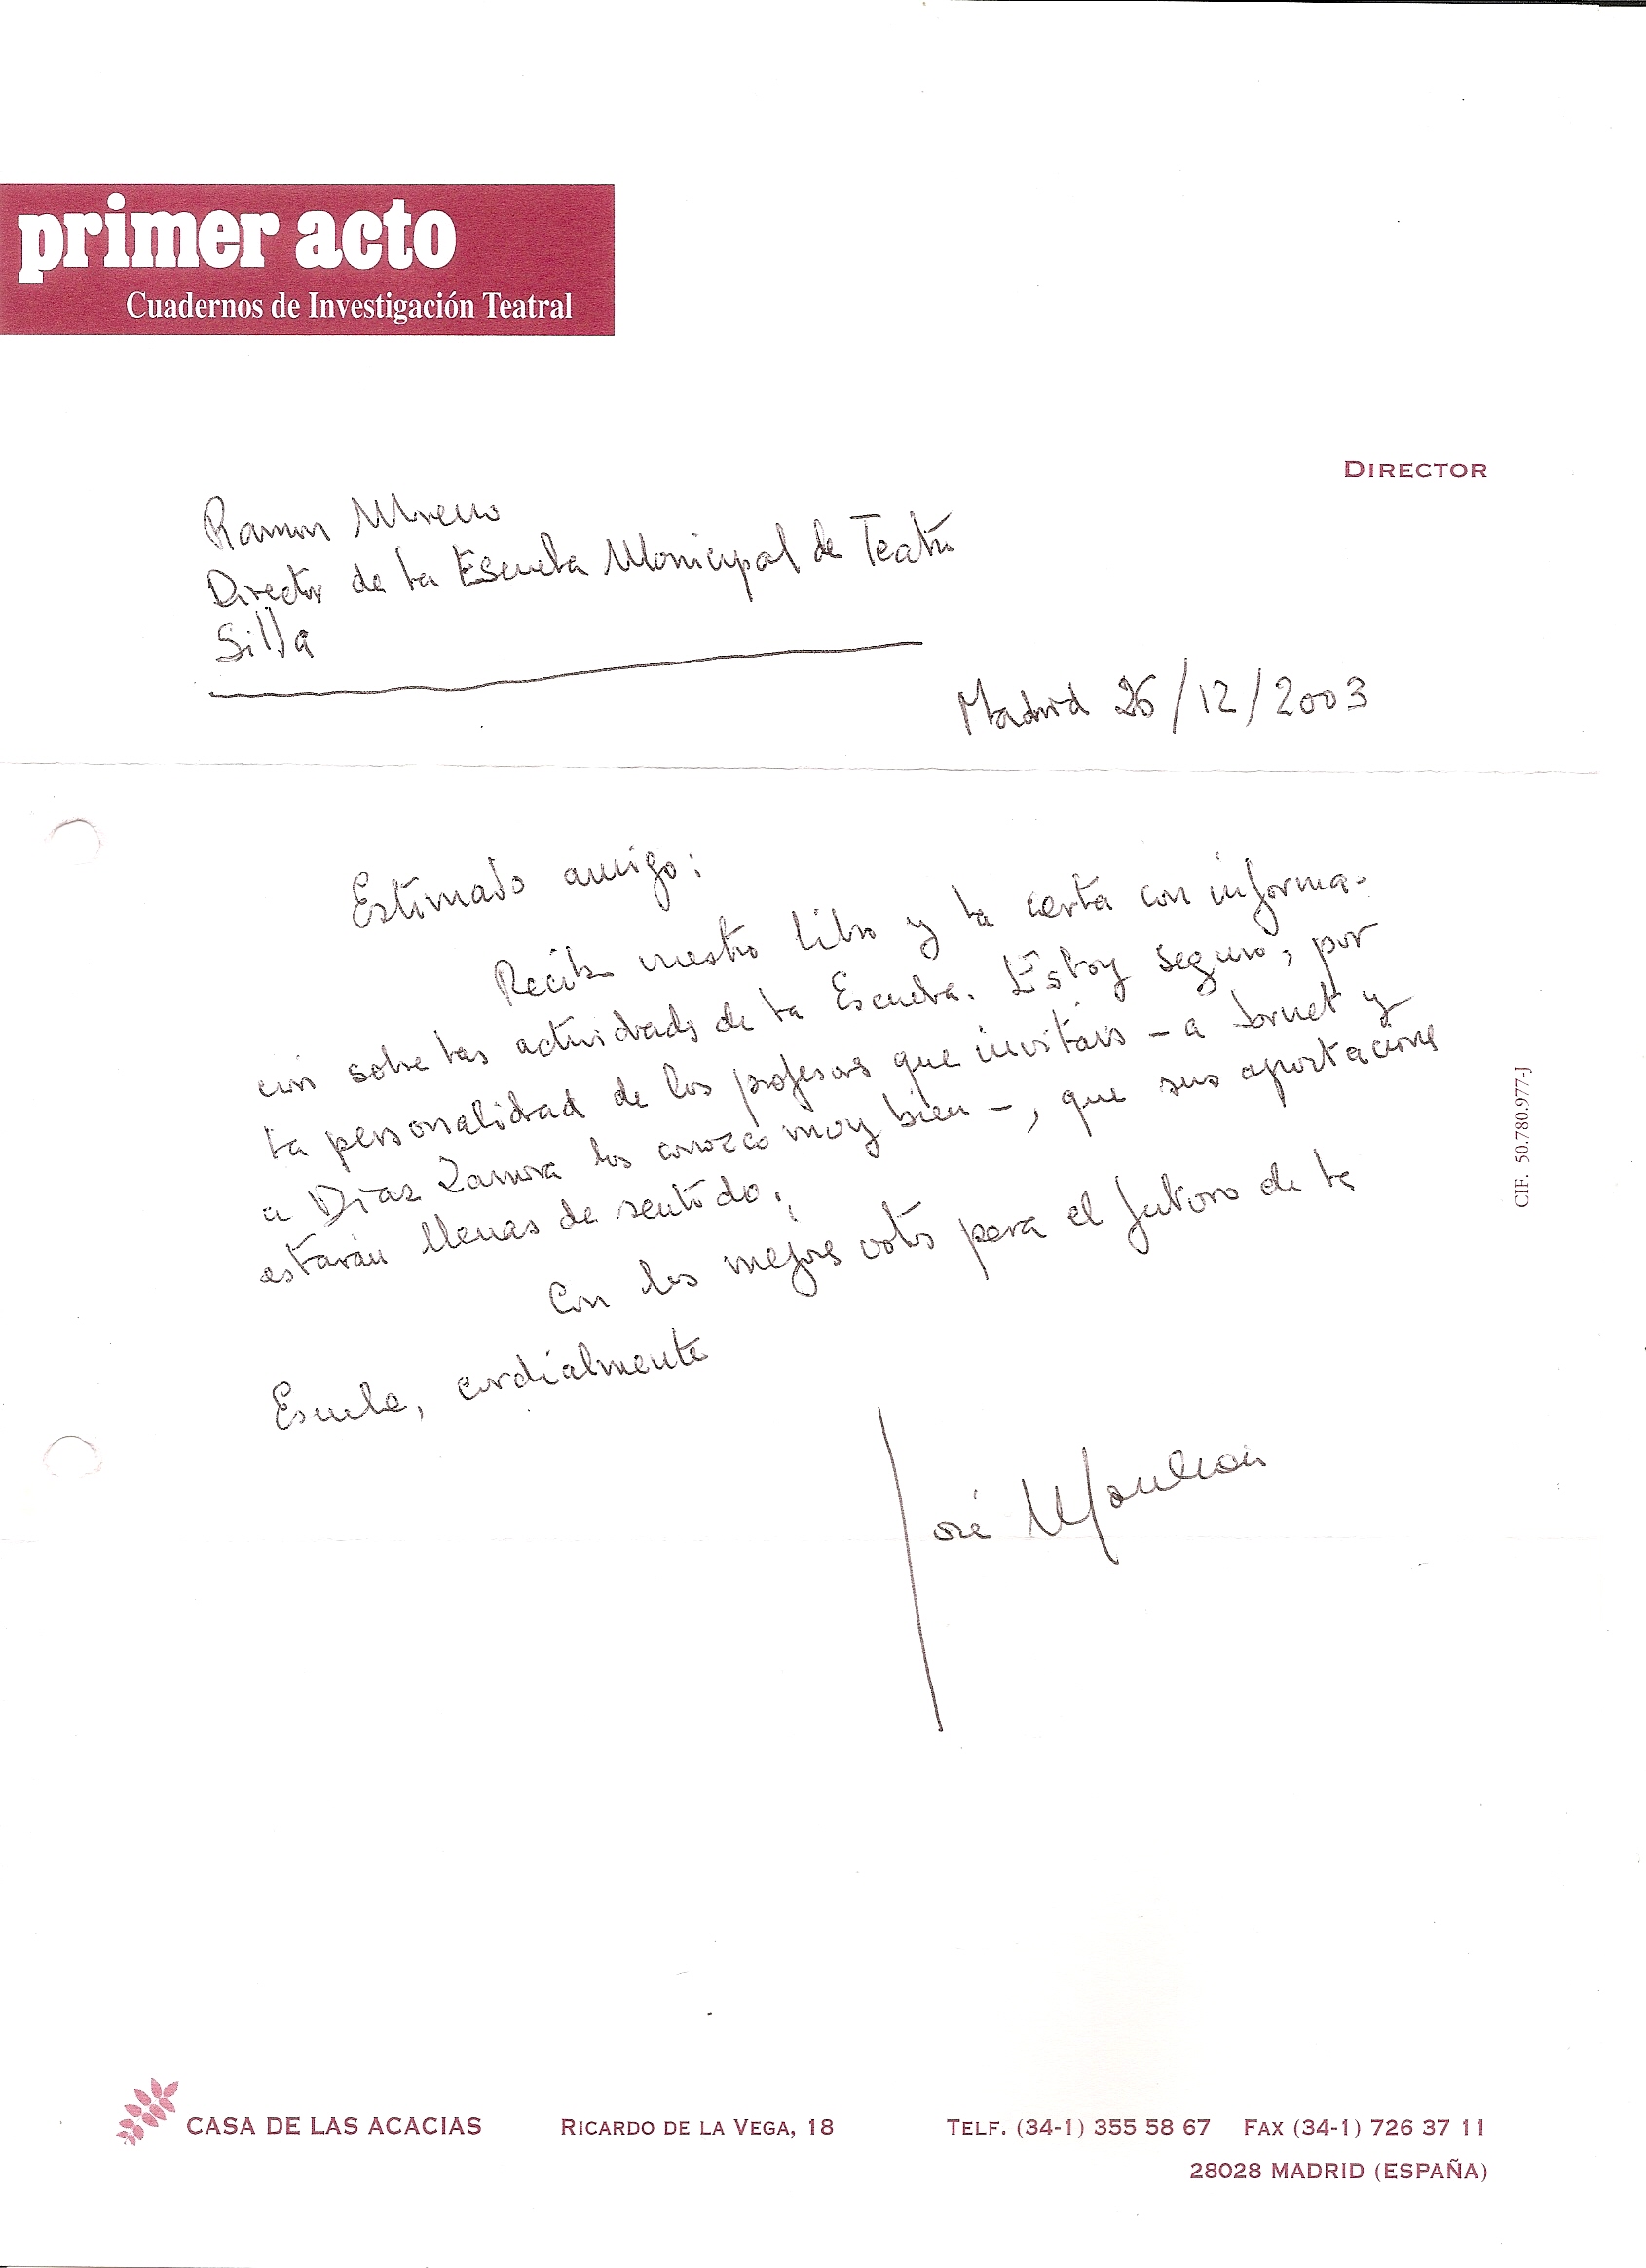 primer acto
Cuadernos de Investigación Teatral
DIRECTOR
Ramon Moreno
Director de la Escuela Municipal de Teatro
Silla
Madrid 26/12/2003
Estimado amigo:
Recibo vuestro libro y la carta con informa-
ción sobre las actividades de la Escuela. Estoy seguro, por
la personalidad de los profesores que invitáis – a Jornet y
a Díaz Zamora los conozco muy bien –, que sus aportaciones
estarán llenas de sentido.
Con los mejores votos para el futuro de la
Escuela, cordialmente
José Monleón
CIF. 50.780.977-J
CASA DE LAS ACACIAS RICARDO DE LA VEGA, 18 TELF. (34-1) 355 58 67 FAX (34-1) 726 37 11
28028 MADRID (ESPAÑA)